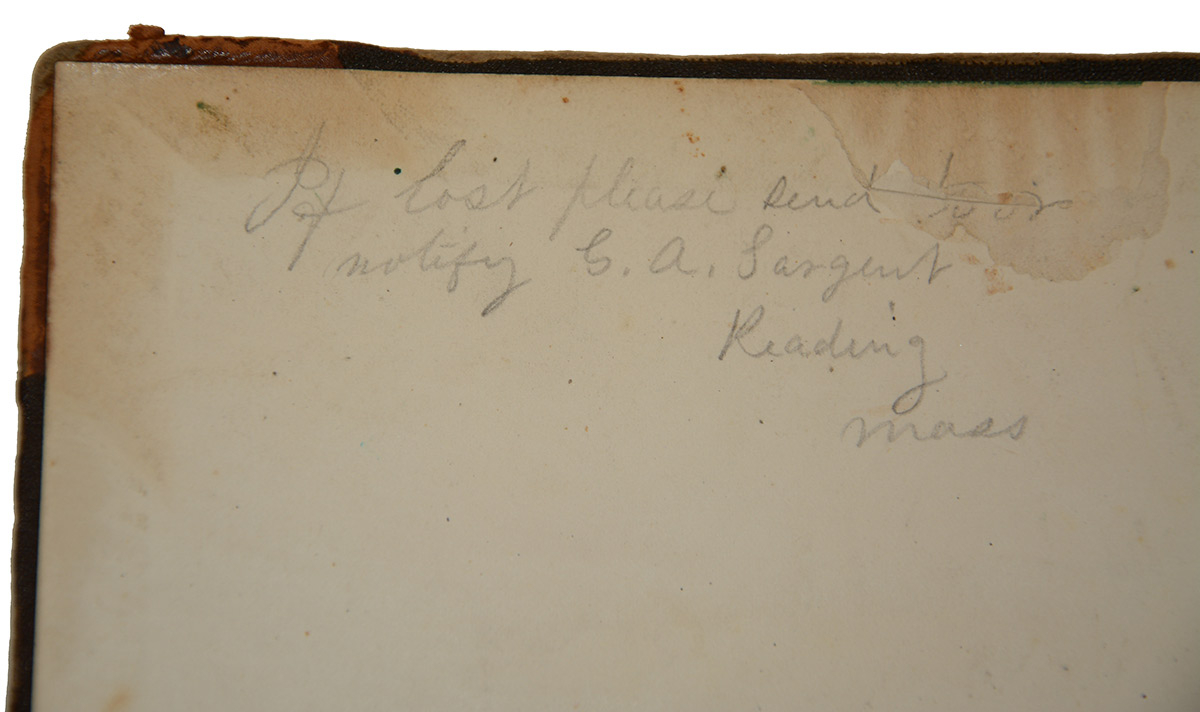 If lost please send to or
notify G. A. Sargent
Reading
Mass